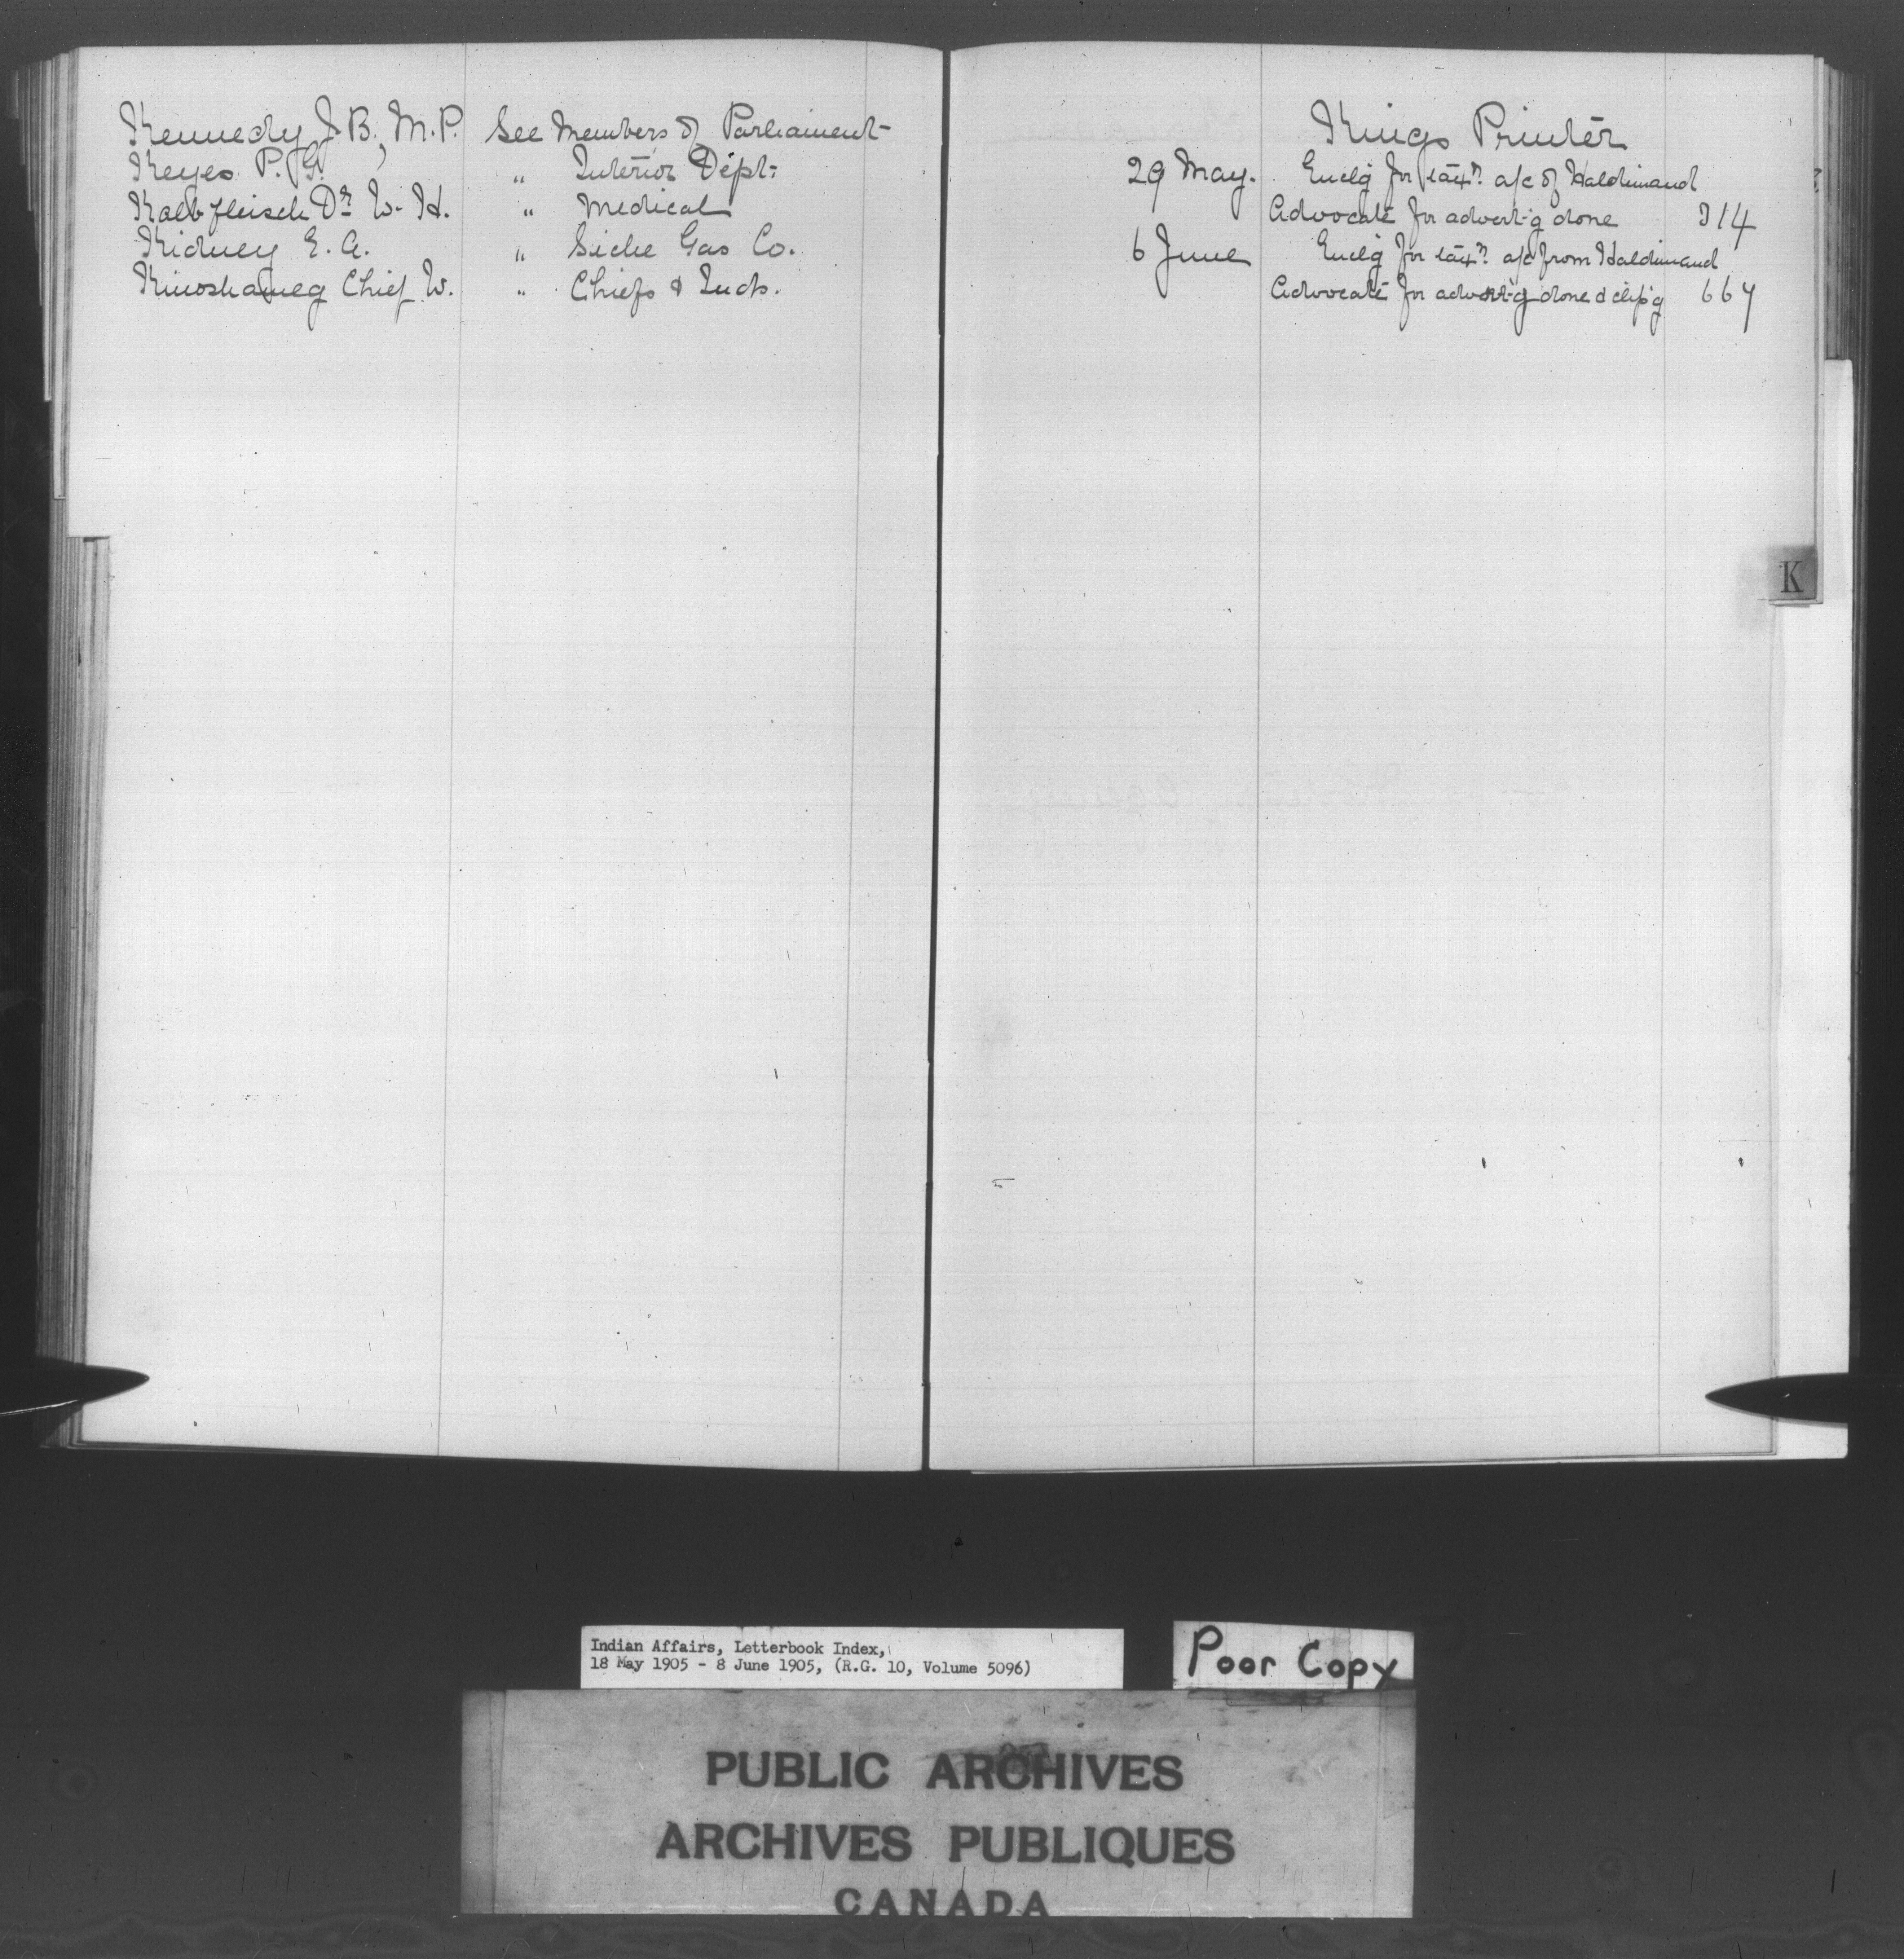 Kennedy J. B., M.P. See Members of Parliament
Keyes P. G. " Interior Dept.
Kalbfleisch Dr W. H. " Medical
Kidney E. A. " Siche Gas Co.
Kinoshameg Chief W. " Chiefs & Inds.
Kings Printer
29 May. Enclg for taxn. a/c of Haldimand
Advocate for advert-g done 314
6 June Enclg for taxn. a/c from Haldimand
Advocate for advert-g done & clip'g 667
K
Indian Affairs, Letterbook Index,
18 May 1905 - 8 June 1905, (R.G. 10, Volume 5096)
Poor Copy
PUBLIC ARCHIVES
ARCHIVES PUBLIQUES
CANADA